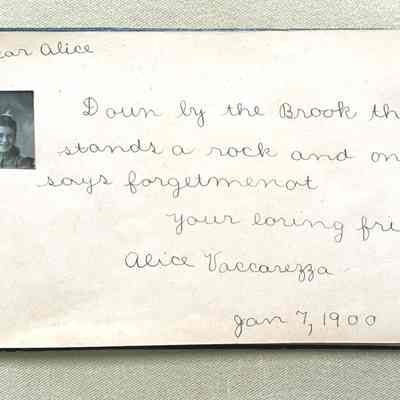 ear Alice
Doun by the Brook th
stands a rock and on
says forgetmenot
Your loving fri
Alice Vaccarezza
Jan 7, 1900